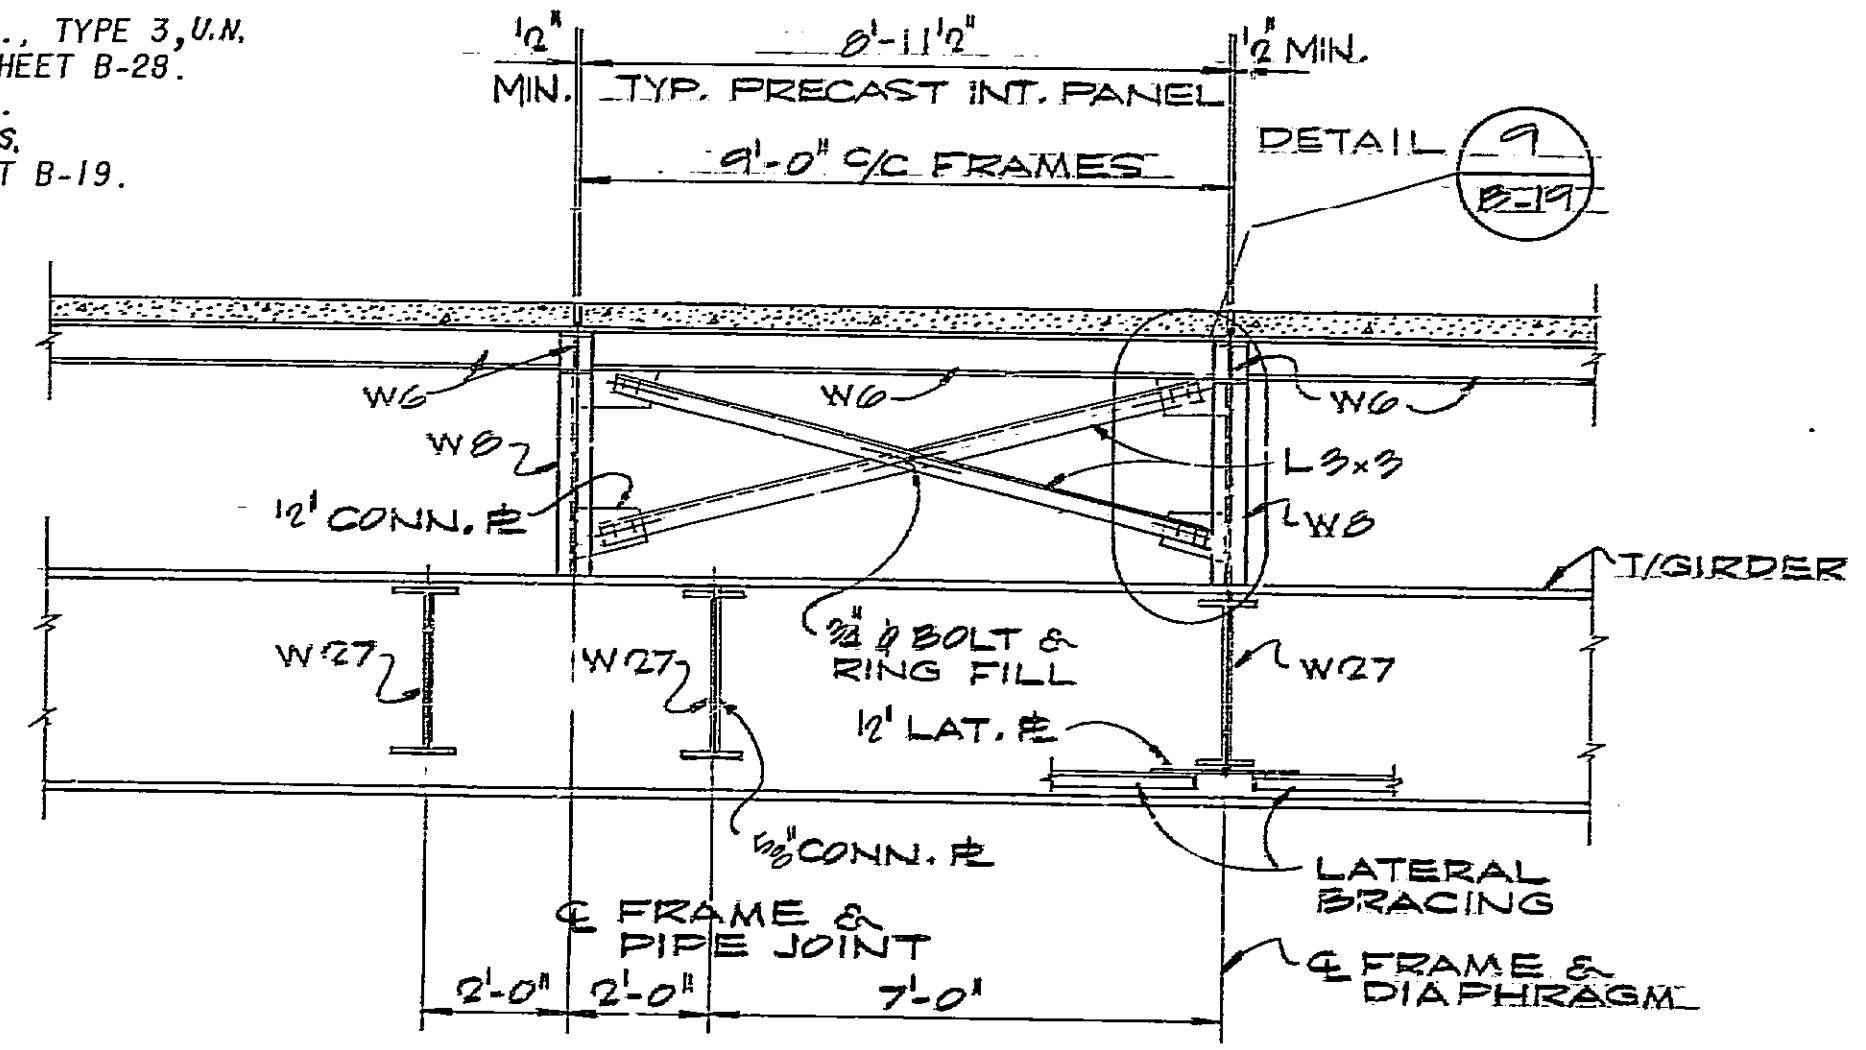 ., TYPE 3, U.N.
HEET B-28.
.
S.
T B-19.
1/2" MIN.
8'-11 1/2"
1/2" MIN.
TYP. PRECAST INT. PANEL
9'-0" C/C FRAMES
DETAIL 9
B-19
W6
W6
W6
W8
L 3x3
1/2" CONN. PL
W8
T/GIRDER
3/4" ø BOLT &
RING FILL
W27
W27
W27
1/2" LAT. PL
5/8" CONN. PL
LATERAL
BRACING
℄ FRAME &
PIPE JOINT
℄ FRAME &
DIAPHRAGM
2'-0"
2'-0"
7'-0"